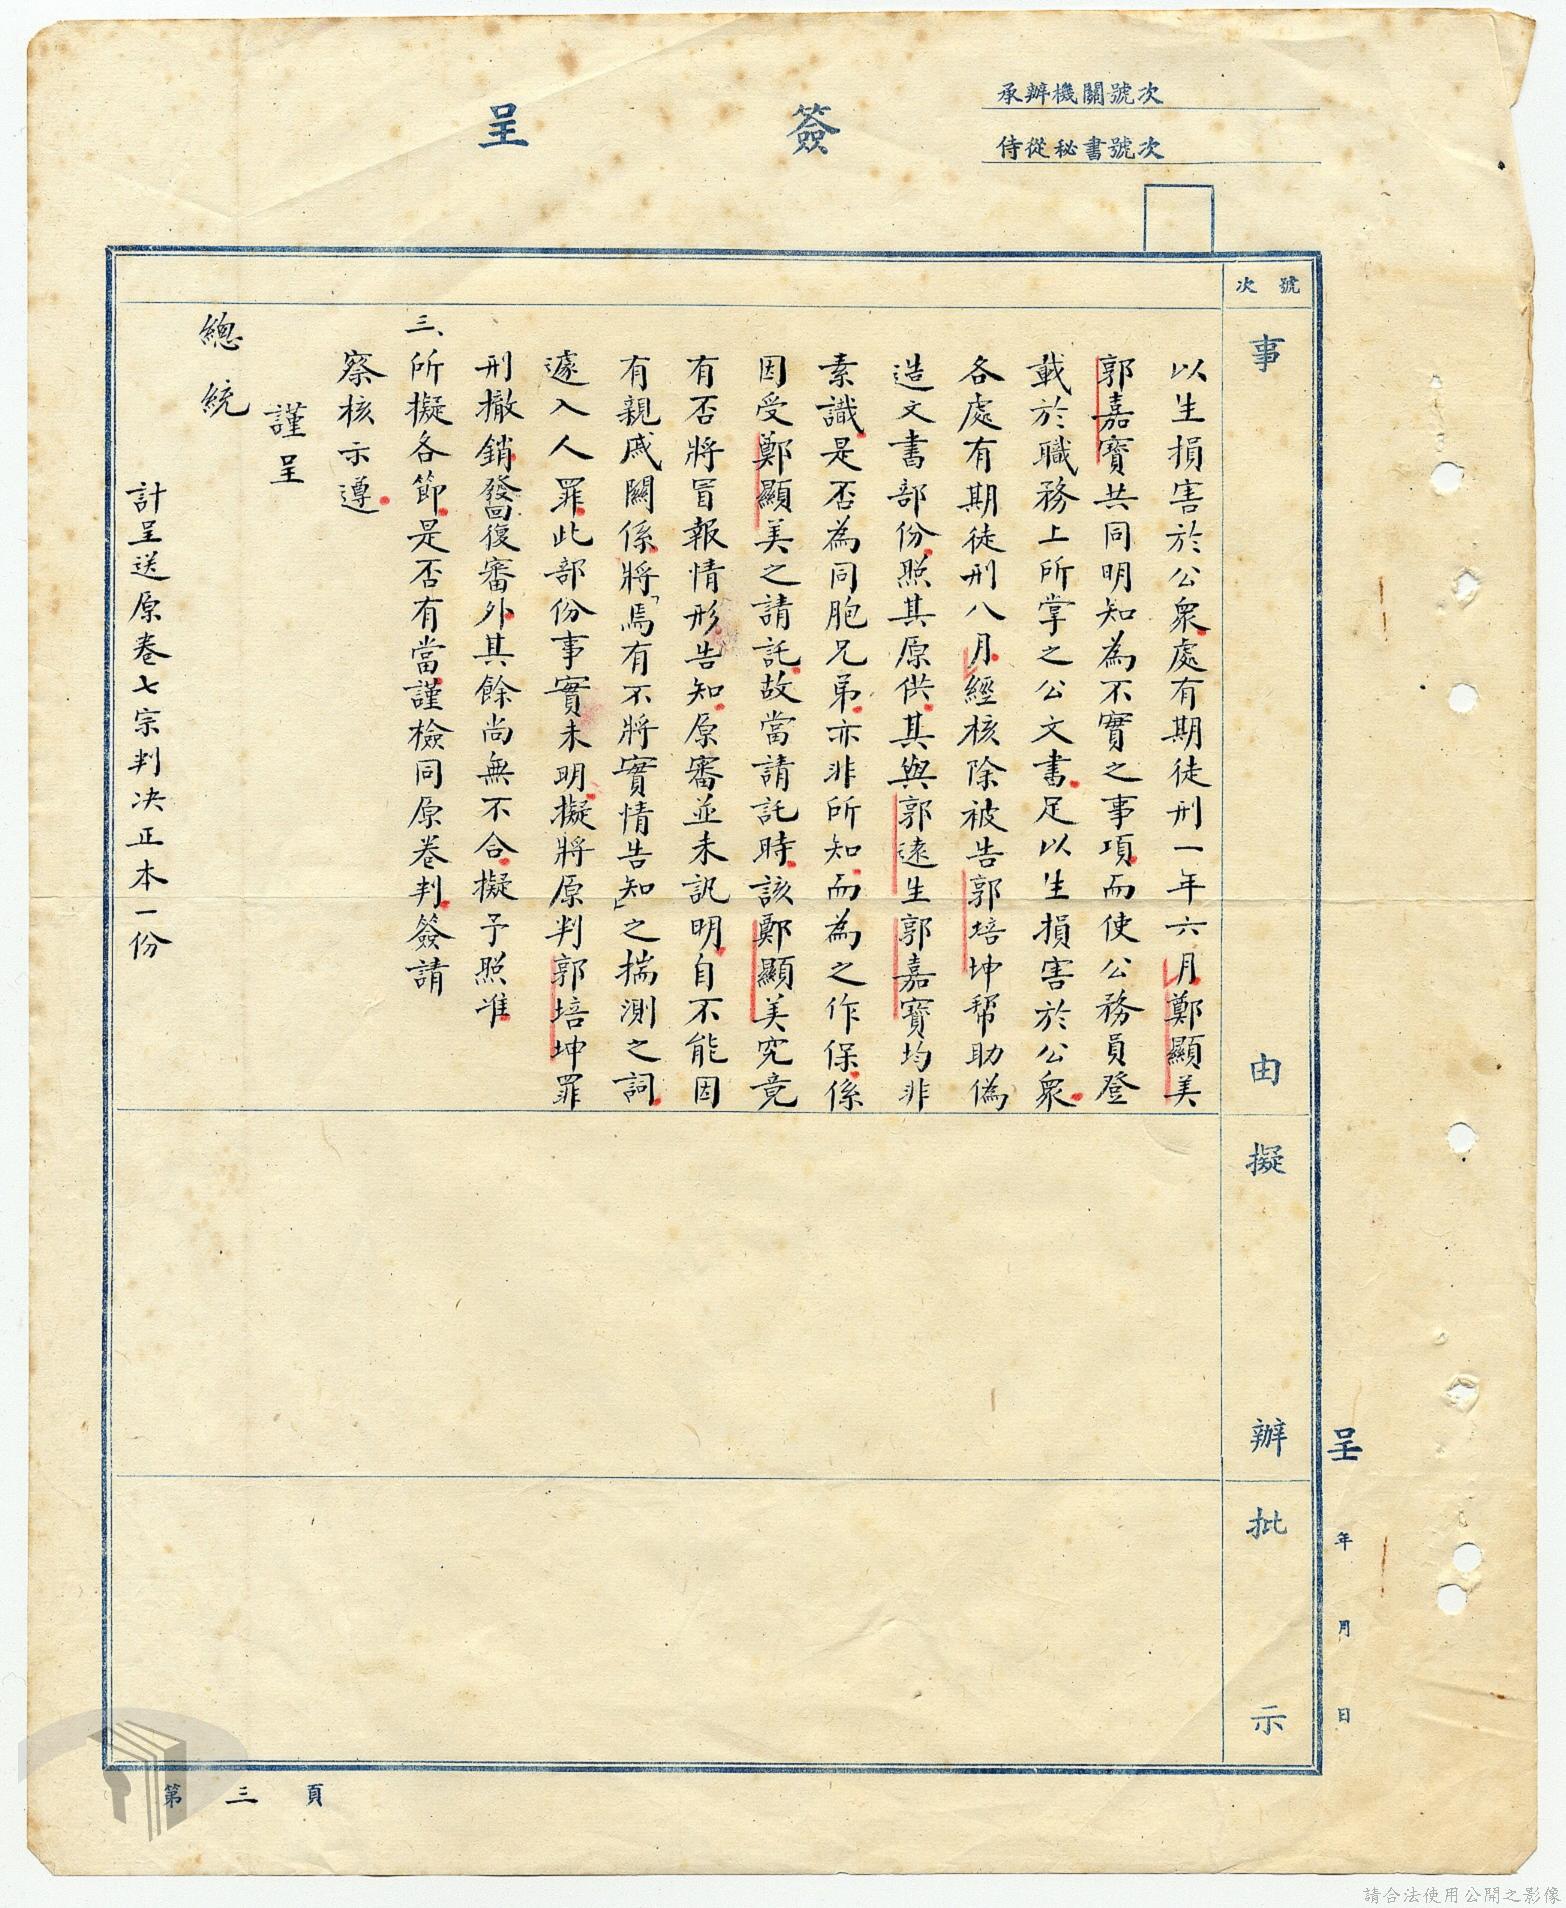 承辦機關號次
侍從秘書號次
簽呈
號次
事由
擬辦
批示
呈 年 月 日
以生損害於公衆處有期徒刑一年六月鄭顯美
郭嘉寶共同明知為不實之事項而使公務員登
載於職務上所掌之公文書足以生損害於公衆
各處有期徒刑八月經核除被告郭培坤幇助偽
造文書部份照其原供其與郭遠生郭嘉寶均非
素識是否為同胞兄弟亦非所知而為之作保係
因受鄭顯美之請託故當請託時該鄭顯美究竟
有否將冒報情形告知原審並未訊明自不能因
有親戚關係將「焉有不將實情告知」之揣測之詞
遽入人罪此部份事實未明擬將原判郭培坤罪
刑撤銷發回復審外其餘尚無不合擬予照准
三、所擬各節是否有當謹檢同原卷判簽請
察核示遵
謹呈
總統
計呈送原卷七宗判决正本一份
第三頁
請合法使用公開之影像